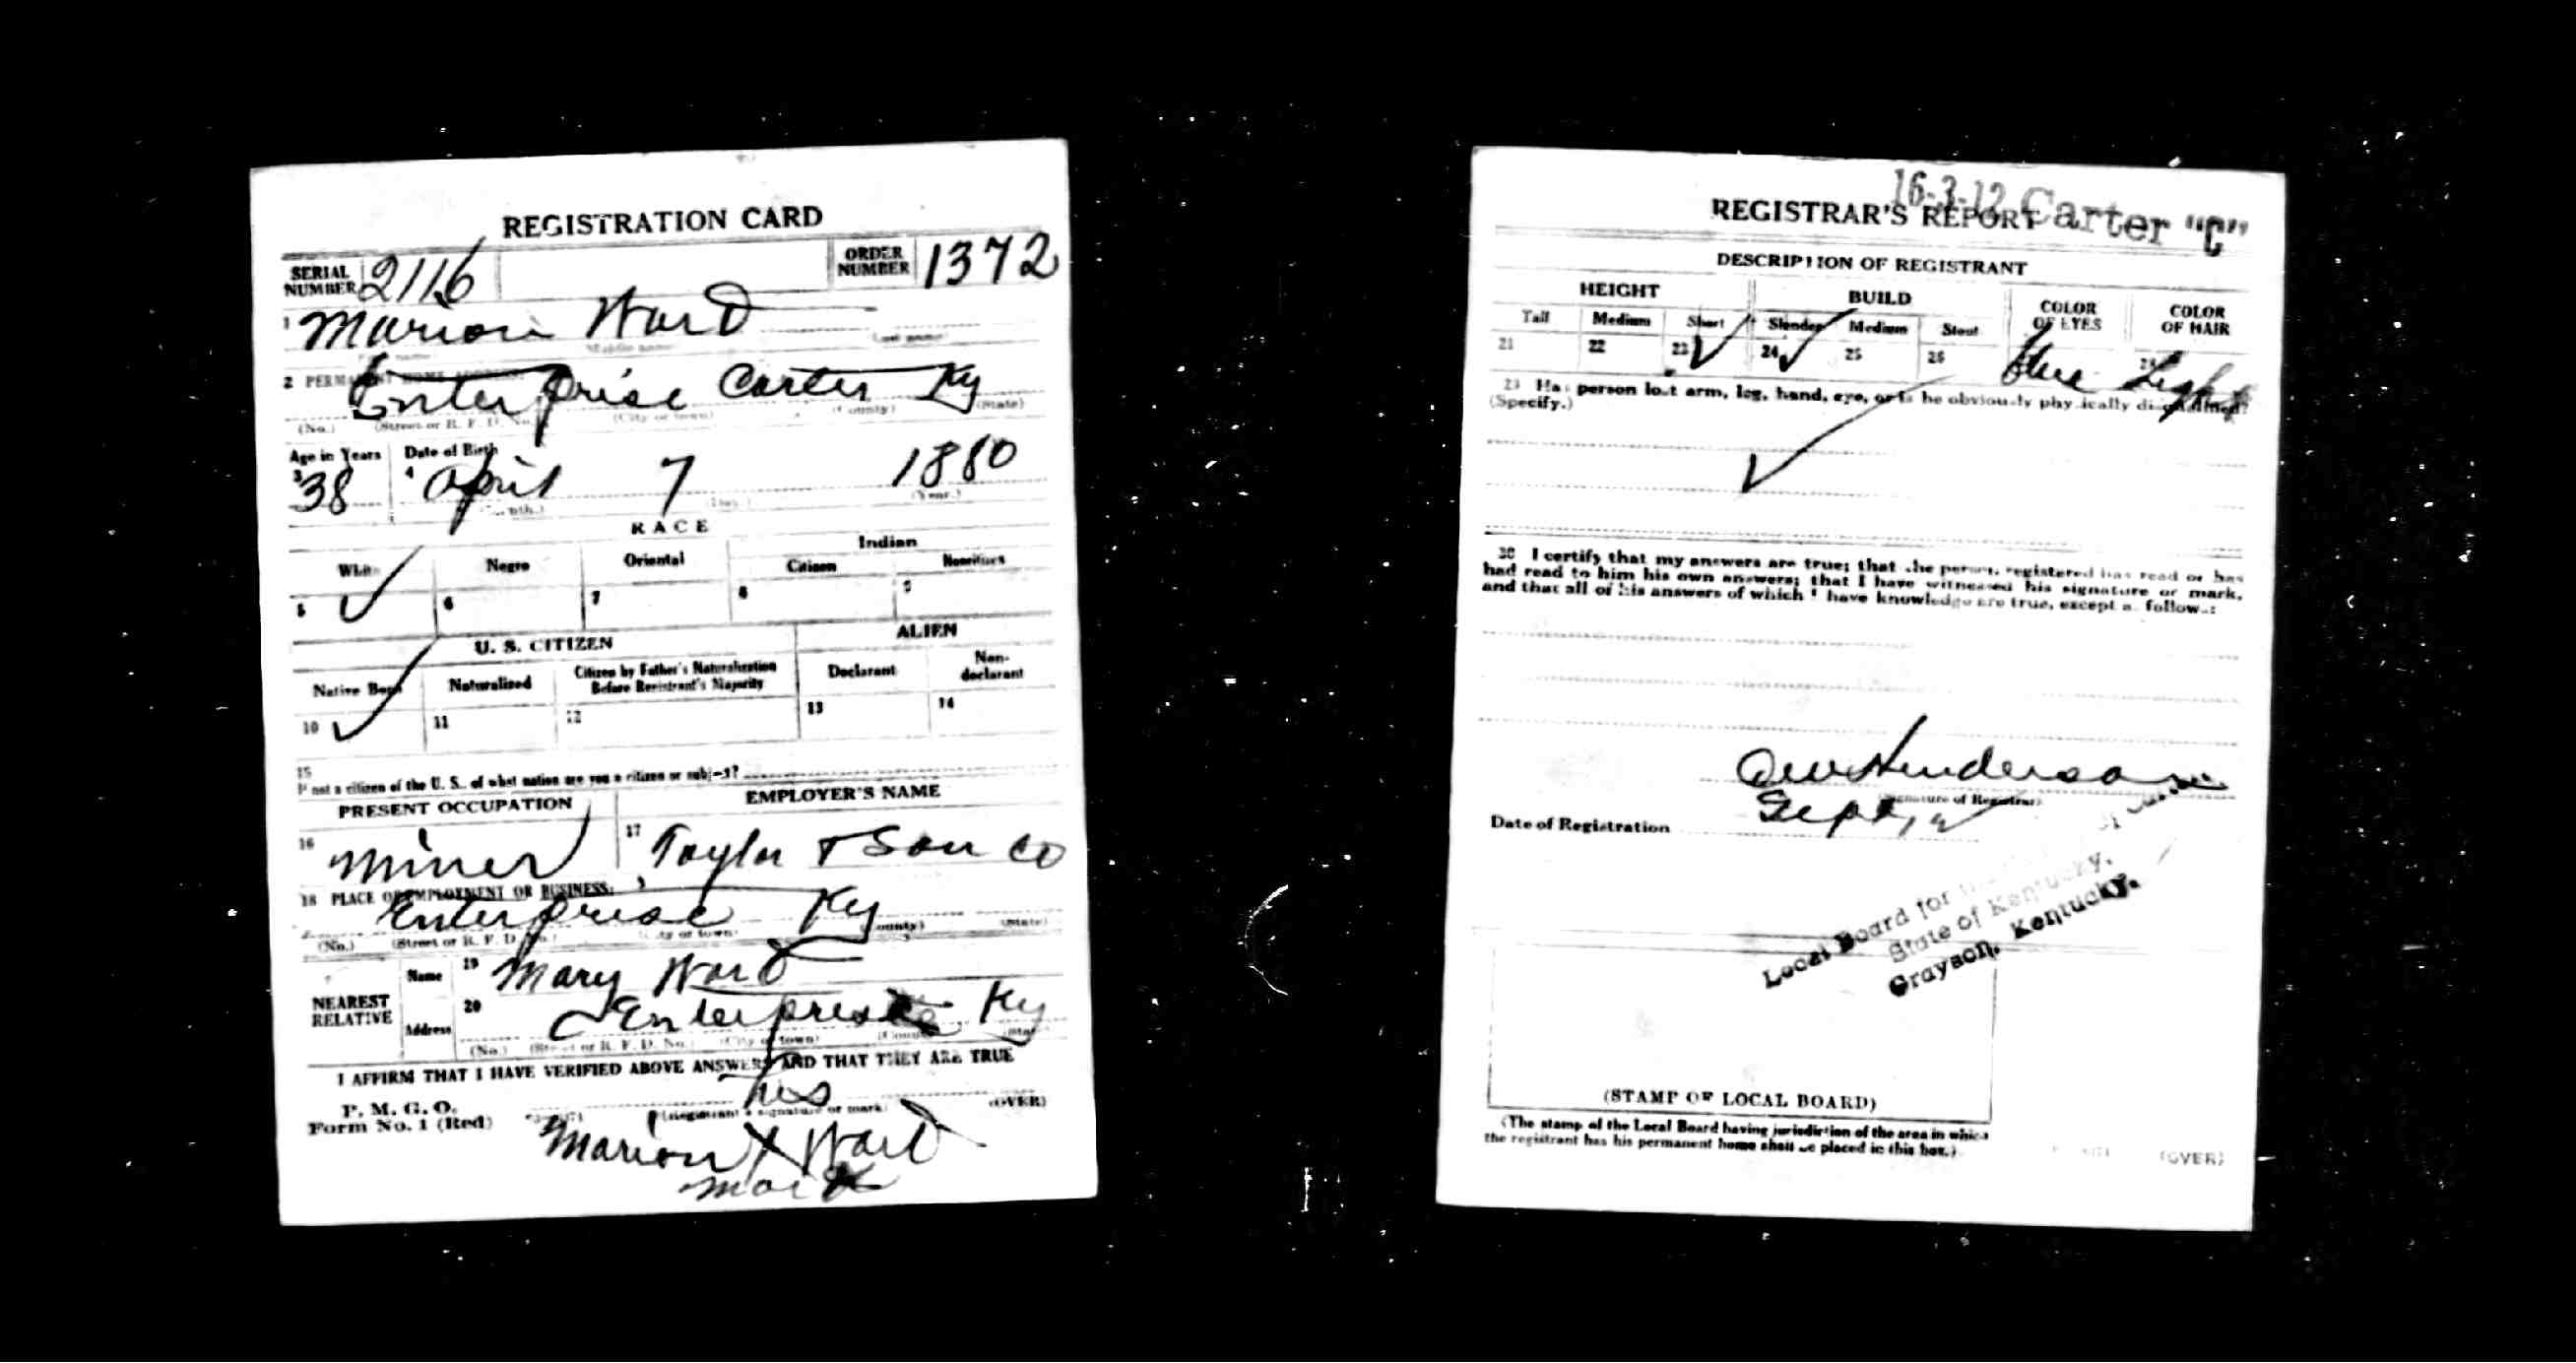 REGISTRATION CARD
SERIAL NUMBER 2116 ORDER NUMBER 1372
1 Marion Ward
2 PERMANENT HOME ADDRESS:
Enterprise Carter Ky
(No.) (Street or R. F. D. No.) (City or town) (County) (State)
Age in Years Date of Birth
3 38 4 April 7 1880
(Month.) (Day.) (Year.)
RACE
White Negro Oriental Indian
Citizen Noncitizen
5 ✓ 6 7 8 9
U. S. CITIZEN ALIEN
Native Born Naturalized Citizen by Father's Naturalization Before Registrant's Majority Declarant Non-declarant
10 ✓ 11 12 13 14
15
If not a citizen of the U. S., of what nation are you a citizen or subject?
PRESENT OCCUPATION EMPLOYER'S NAME
16 Miner 17 Taylor & Son Co
18 PLACE OF EMPLOYMENT OR BUSINESS:
Enterprise Ky
(No.) (Street or R. F. D. No.) (City or town) (County) (State)
NEAREST RELATIVE
Name 19 Mary Ward
Address 20 Enterprise Ky
(No.) (Street or R. F. D. No.) (City or town) (County) (State)
I AFFIRM THAT I HAVE VERIFIED ABOVE ANSWERS AND THAT THEY ARE TRUE
P. M. G. O.
Form No. 1 (Red) his
(Registrant's signature or mark) (OVER)
Marion X Ward
mark
16-3-12 Carter "C"
REGISTRAR'S REPORT
DESCRIPTION OF REGISTRANT
HEIGHT BUILD COLOR OF EYES COLOR OF HAIR
Tall Medium Short Slender Medium Stout
21 22 23 ✓ 24 ✓ 25 26 Blue Light
29 Has person lost arm, leg, hand, eye, or is he obviously physically disqualified?
(Specify.)
✓
30 I certify that my answers are true; that the person registered has read or has
had read to him his own answers; that I have witnessed his signature or mark,
and that all of his answers of which I have knowledge are true, except as follows:
Henderson
(Signature of Registrar)
Date of Registration Sept, 12
Local Board for
State of Kentucky,
Grayson, Kentucky.
(STAMP OF LOCAL BOARD)
(The stamp of the Local Board having jurisdiction of the area in which
the registrant has his permanent home shall be placed in this box.)
(OVER)